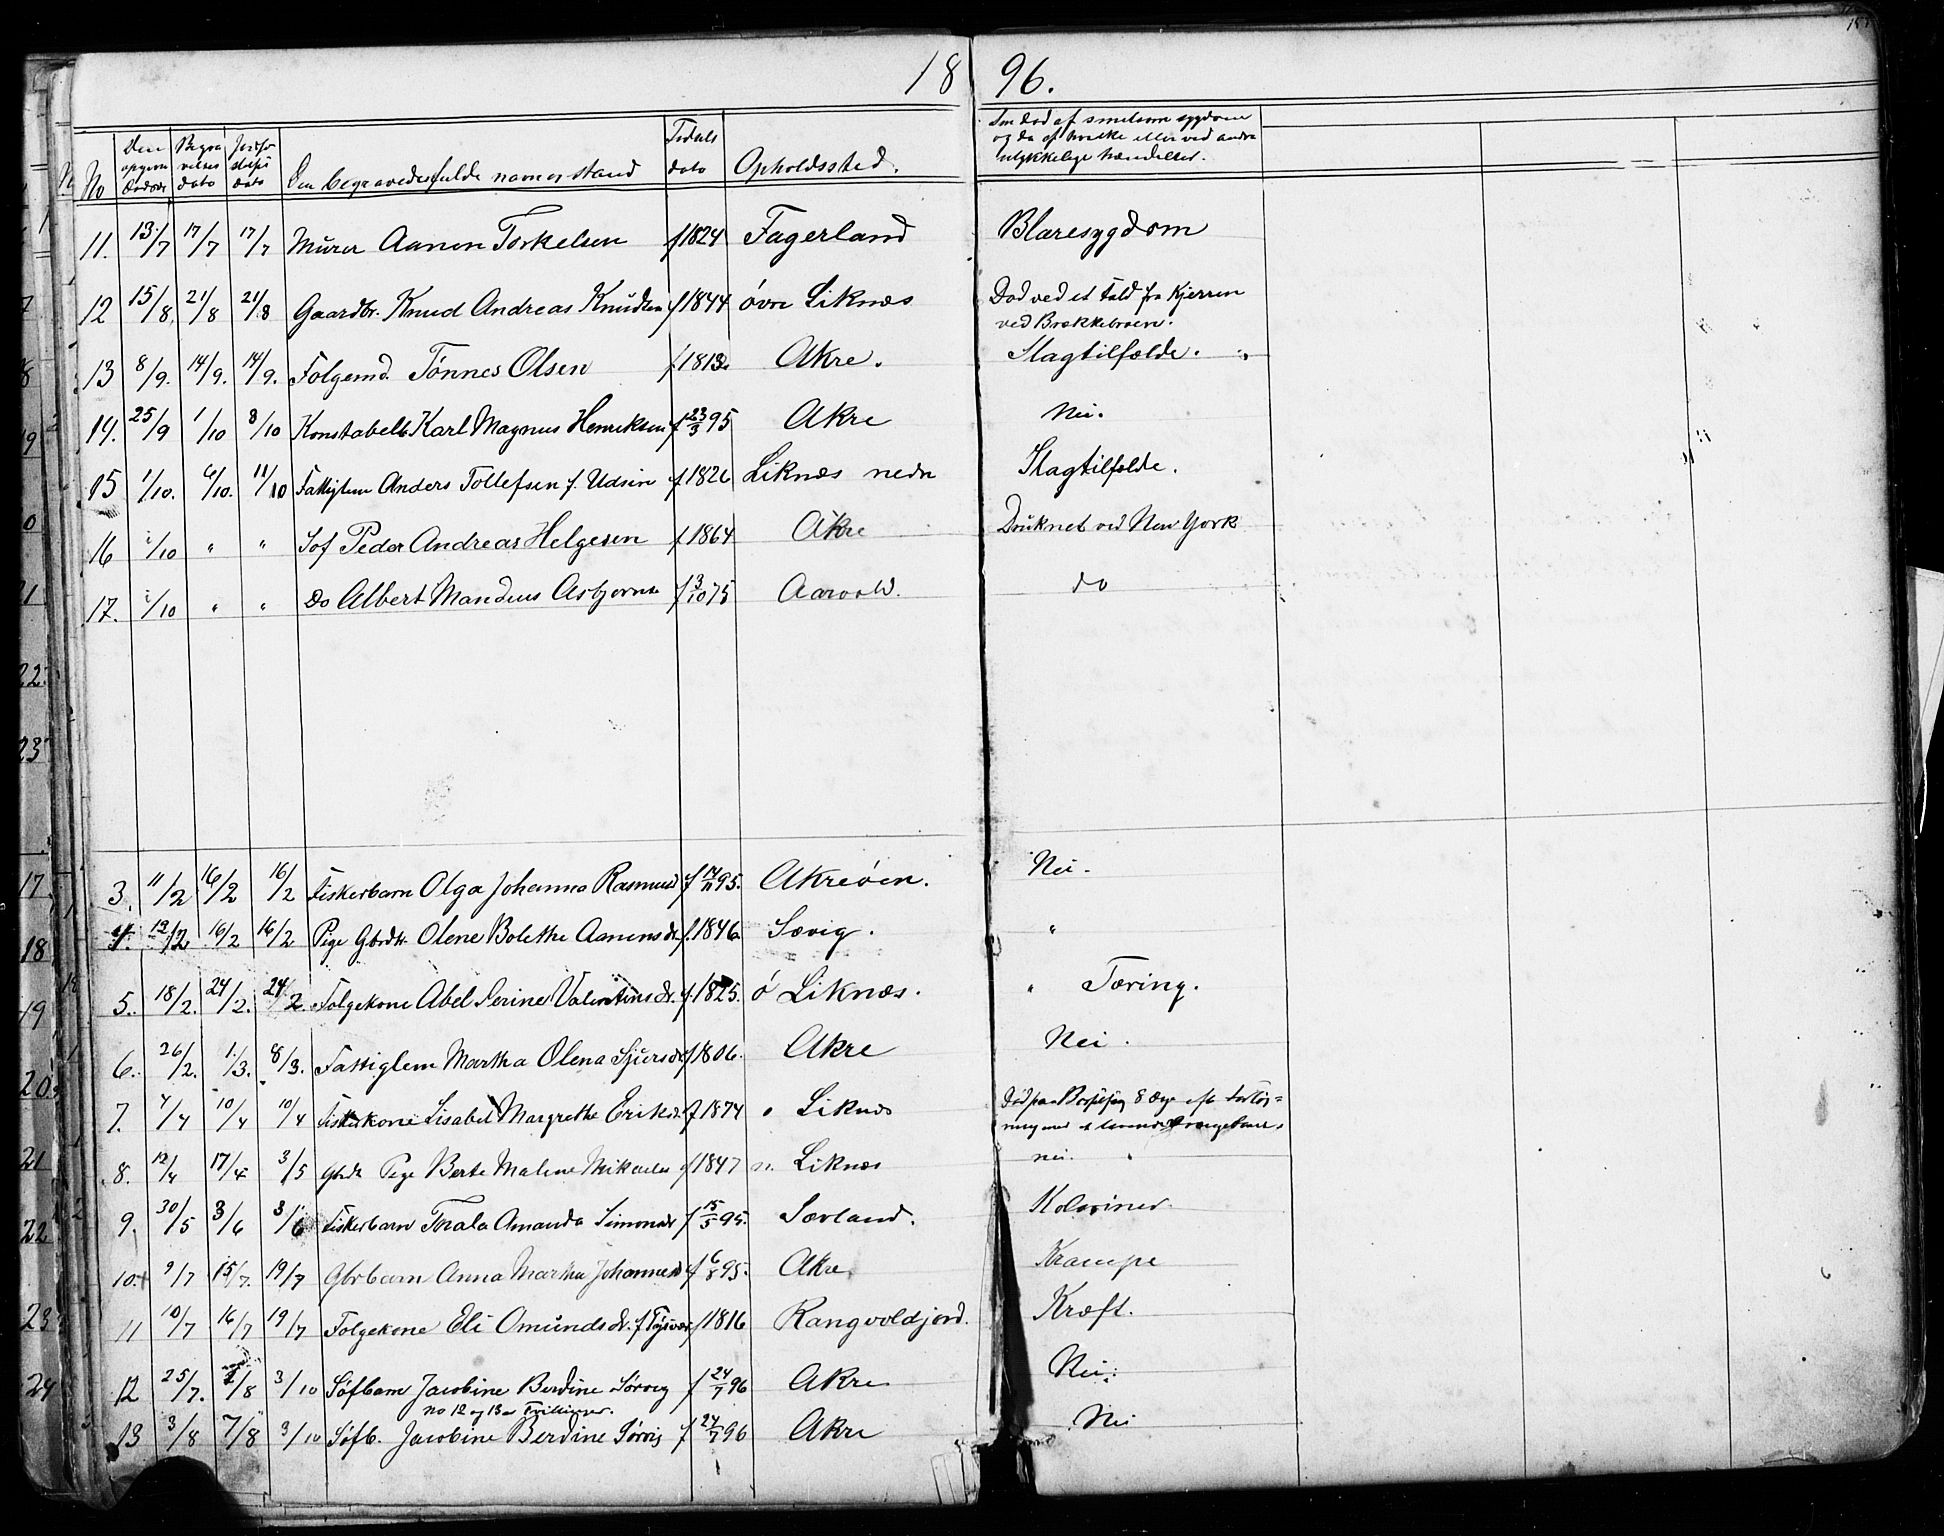 18 96.
No | Den opgivne Dødsda | Begra velses dato | Jordfæ stelses dato | Den begravedes fulde navn og stand | Fødsels dato | Opholdssted. | Om død af smitsom sygdom og da af hvilke eller ved andre ulykkelige hændelser.
11. 13/7 17/7 17/7 Murer Aanen Torkelsen f 1824 Fagerland Blæresygdom
12 15/8. 21/8 21/8 Gaardbr. Knud Andreas Knudsen f 1844 øvre Liknæs Død ved et Fald fra Kjerren
ved Brekkebroen.
13 8/9. 14/9. 14/9. Følgemd. Tönnes Olsen f 1813 Akre. Slagtilfælde.
14. 25/9 1/10 8/10 Konstabelb Karl Magnus Henriksen f 23/3 95 Akre Nei.
15 1/10. 6/10. 11/10 Fattiglem Anders Tollefsen f. Udsire f 1826 Liknæs nedre Slagtilfælde.
16 /10 " " Sof Peder Andreas Helgesen f 1864 Akre Druknet ved New York
17. /10 " " Do Albert Mandius Asbjørns f 3/10 75 Aarvold. do
3. 11/2 16/2 16/2 Fiskerbarn Olga Johanna Rasmusd f 14/11 95. Akreøen. Nei.
4. 12/2 16/2 16/2 Pige Gbrdtr. Olene Bolethe Aanensdr. f. 1846 Sævig. "
5. 18/2. 24/2. 24/2. Følgekone Abel Serine Valentinsdr. f. 1825. ø Liknæs. " Tæring.
6. 26/2. 1/3. 8/3. Fattiglem Martha Olena Sjursdr f 1806. Akre Nei.
7. 4/4 10/4 10/4 Fiskerkone Lisabet Margrethe Eriksd. f 1874 ø Liknæs Død paa Barselseng 8 Dage eft. forløs=
ning med et levende Drengebarn.
8. 12/4 17/4 3/5 Gbrdtr Pige Berte Maline Mikaelsd f 1847 n. Liknæs nei.
9. 30/5 3/6 3/6 Fiskerbarn Thala Amanda Simonsdr f 15/5 95. Sævland. Kolerined.
10. 9/7 15/7. 19/7 Gbrbarn Anna Martha Johannesd f 6/8 95. Akre Krampe
11 10/7 16/7 19/7 Følgekone Eli Omundsdr. f. Tysvær f 1816 Rangvoldjord. Kræft.
12 25/7. /8 3/10 Søfbarn Jacobine Berdine Sørvig f 24/7 96 Akre Nei.
No 12 og 13 er Tvillinger.
13 3/8 7/8 3/10 Søfb. Jacobine Berdine Sørvig f 24/7 96 Akre Nei
17
18
19
20
21
22
23
24